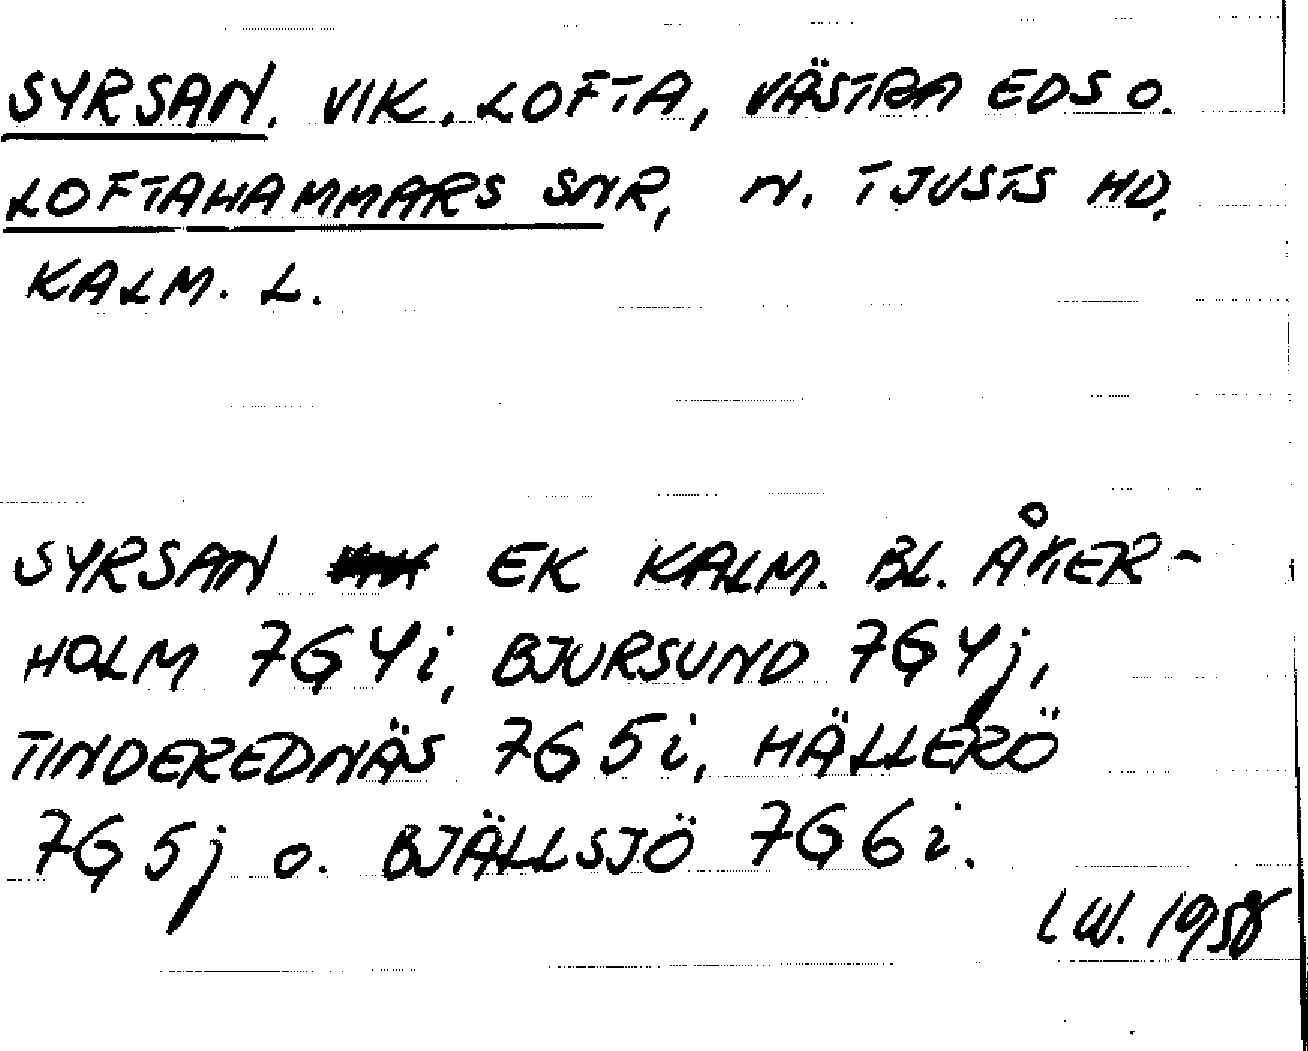 SYRSAN. VIK. LOFTA, VÄSTRA EDS O.
LOFTAHAMMARS SNR, N. TJUSTS HD,
KALM. L.
SYRSAN EK KALM. BL. ÅKER-
HOLM 7G4i, BJURSUND 7G4j,
TINDEREDNÄS 7G5i, HÄLLERÖ
7G5j o. BJÄLLSJÖ 7G6i.
LW. 1958